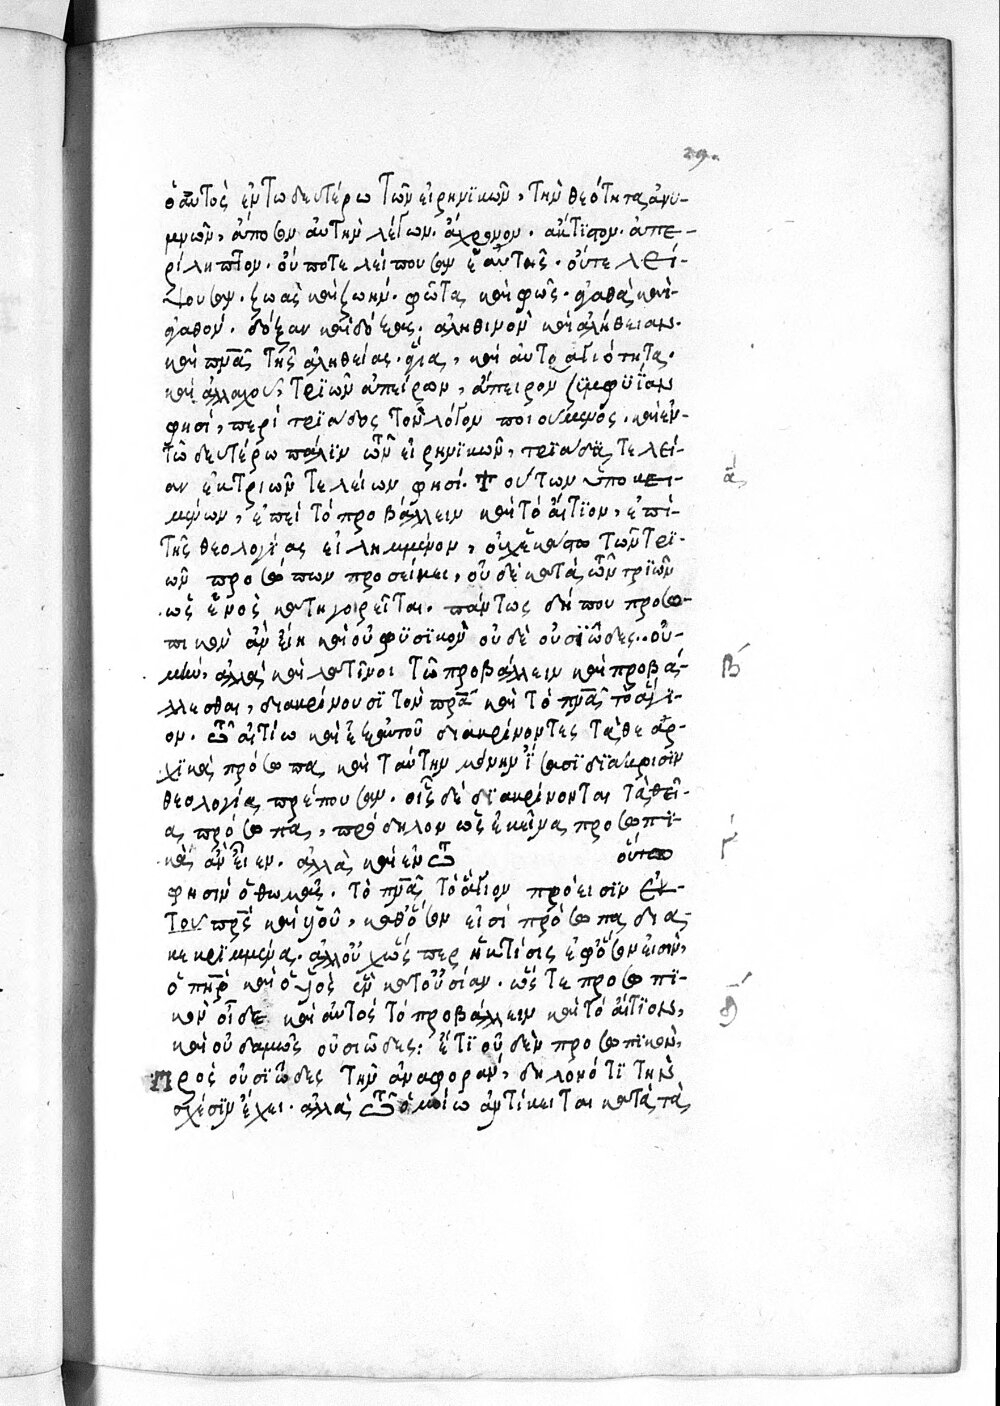 29.
ὁ αὐτὸς ἐν τῶ δευτέρω τῶν εἰρηνϊκῶν, τὴν θεότητα ἀνυ-
μνῶν, ἄπουσαν αὐτὴν λέγων. ἄχρονον. ἄκτϊστον. ἀπε-
ρίληπτον. οὔποτε λείπουσαν ἑαυτῆς. οὔτε λεί-
ψουσαν. ζωὰς καὶ ζωήν. φῶτα καὶ φῶς. ἀγαθὰ καὶ ἀ-
γαθόν. δόξαν καὶ δόξας. ἀληθινὸν καὶ ἀλήθειαν.
καὶ πνᾶ τῆς ἀληθείας. ἅγια, καὶ αὐτοαγιότητα.
καὶ ἀλλαχοῦ, τρϊῶν ἀπείρων, ἄπειρον ξϋμφϋΐαν
φησί, περὶ τρϊάδος τὸν λόγον ποιούμενος. καὶ ἐν
τῶ δευτέρω πάλϊν τῶν εἰρηνϊκῶν, τρϊάδα τελεί-
αν ἐκ τριῶν τελείων φησί. Τούτων ὑποκει-
μένων, ἐπεὶ τὸ προβάλλειν καὶ τὸ αἴτϊον, ἐπὶ
τῆς θεολογίας εἰλημμένον, οὐχ ἑκάστω τῶν τρϊ-
ῶν προσώπων προσείκει, οὐδὲ κατὰ τῶν τρϊῶν
ὡς ἑνὸς κατηγορεῖται. πάντως δήπου προσω-
πικὸν ἂν εἴη καὶ οὐ φϋσϊκὸν οὐδὲ οὐσϊῶδες. οὐ
μὴν, ἀλλὰ καὶ λατῖνοι τῶ προβάλλειν καὶ προβά-
λλεσθαι, διακρίνουσϊ τὸν πρᾶ καὶ τὸ πνᾶ τὸ ἅγϊ-
ον. τῶ αἰτίω καὶ ἐξ αὐτοῦ διακρίνοντες τὰ θεαρ-
χϊκὰ πρόσωπα καὶ ταύτην μόνην ἴσασϊ διάκρισϊν
θεολογία πρέπουσαν. οἷς δὲ δϊακρίνονται τὰ θεῖ-
α πρόσωπα, πρόδηλον ὡς ἐκεῖνα προσωπϊ-
κὰ ἂν εἶεν. ἀλλὰ καὶ ἐν τῶ οὕτω
φησὶν ὁ θωμᾶς. τὸ πνᾶ τὸ ἅγιον πρόεισϊν ἐκ
τοῦ πρς καὶ υἱοῦ, καθόσον εἰσὶ πρόσωπα δια-
κεκρϊμμένα. ἀλλ' οὐχ ὥσπερ ἡ κτίσις ἐφόσον εἰσὶν,
ὁ πηρ καὶ ὁ υἱὸς ἓν κατ' οὐσίαν. ὥστε προσωπϊ-
κὸν οἶδε καὶ αὐτὸς τὸ προβάλλειν καὶ τὸ αἴτϊον,
καὶ οὐδαμῶς οὐσιῶδες: ἔτϊ οὐδὲν προσωπϊκὸν,
πρὸς οὐσϊῶδες τὴν ἀναφορὰν, δηλονότϊ τὴν
σχέσϊν ἔχει. ἀλλὰ τῶ ὁμοίω ἀντίκειται κατὰ τὰ
ᾱ
Β
γ
δ